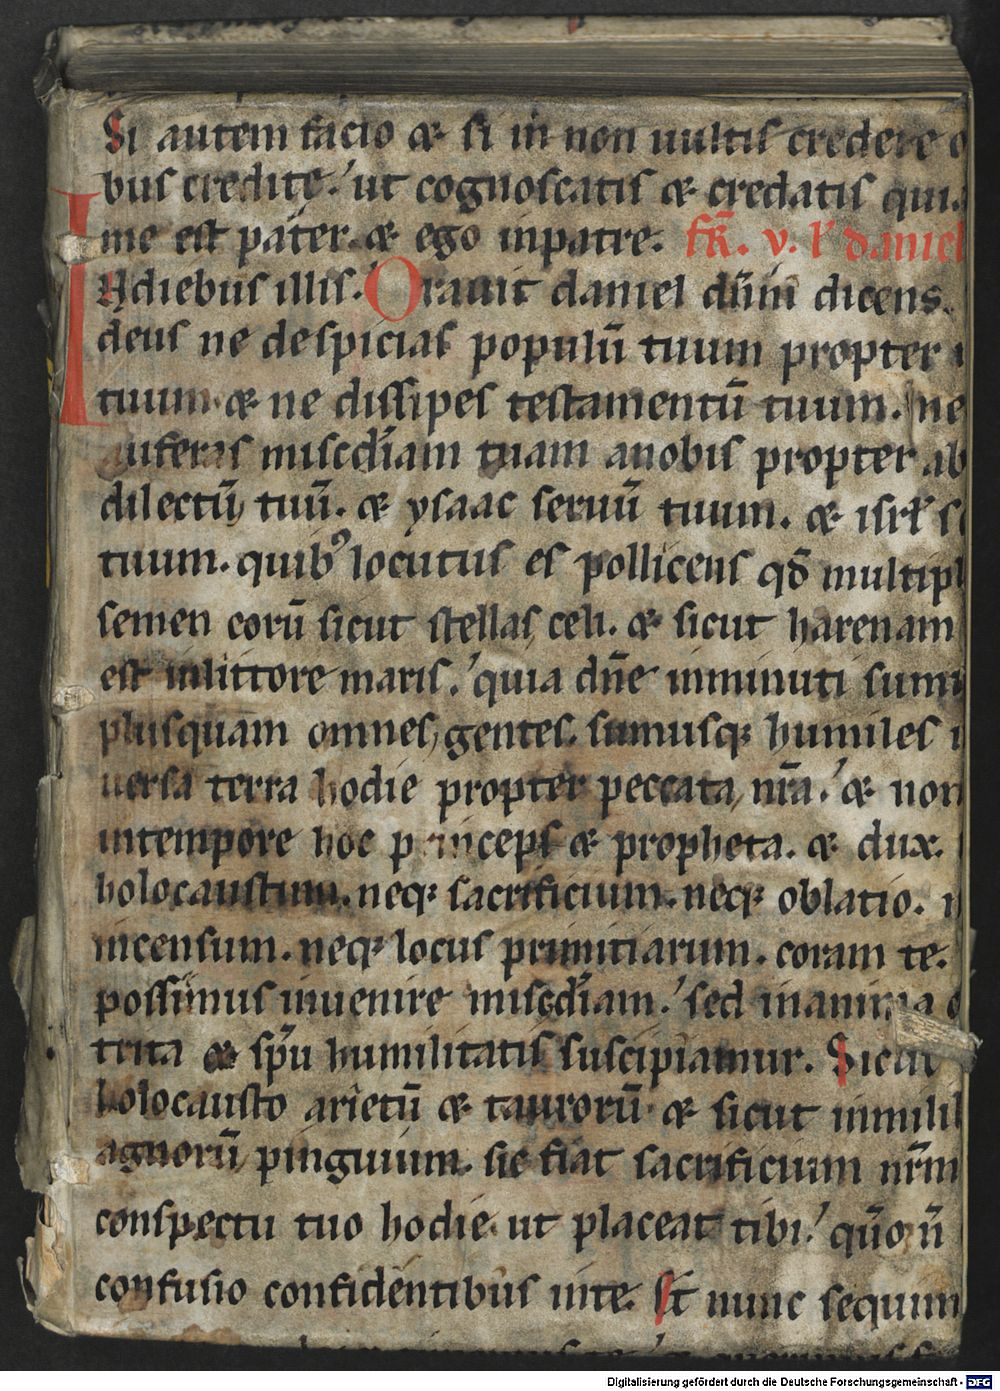 Si autem facio & si m̅ non uultis credere o
bus credite. ut cognoscatis & credatis qui
me est pater. & ego inpatre. fr̅. v. l' daniel
Indiebus illis. Orauit daniel dn̅m dicens.
deus ne despicias populū tuum propter
tuum. & ne dissipes testamentū tuum. ne
auferas misc̅diam tuam anobis propter ab
dilectū tuū. & ysaac seruū tuum. & isrl̅ s
tuum. quibꝰ locutus es pollicens qd̅ multipl
semen eorū sicut stellas celi. & sicut harenam
est inlittore maris. quia dn̅e inminuti sum
plusquam omnes gentes. sumusqꝫ humiles
uersa terra hodie propter peccata nr̅a. & non
intempore hoc princeps & propheta. & dux.
holocaustum. neqꝫ sacrificium. neqꝫ oblatio.
incensum. neqꝫ locus primitiarum. coram te.
possimus inuenire misc̅diam. sed inanima
trita & sp̅u humilitatis suscipiamur. Sicut
holocausto arietū & taurorū & sicut inmilil
agnorū pinguium. sic fiat sacrificium nr̅m
conspectu tuo hodie ut placeat tibi. qūo n̅
confusio confidentibus inte. Et nunc sequim
Digitalisierung gefördert durch die Deutsche Forschungsgemeinschaft - DFG